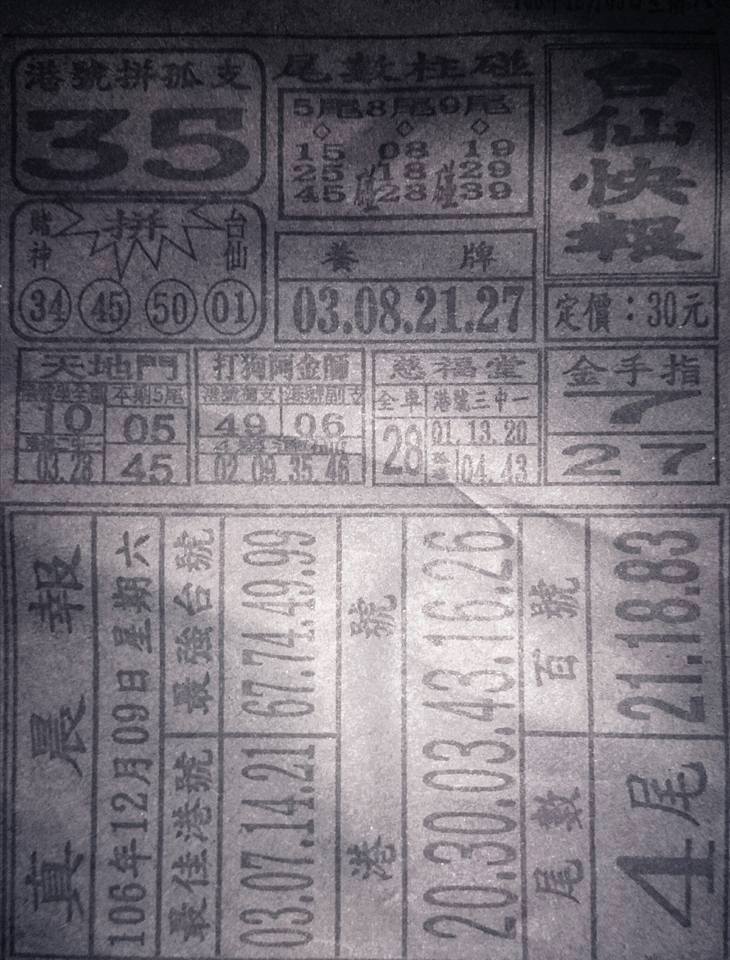 港號拼孤支
35
尾數柱碰
5尾8尾9尾
15 08 19
25碰18碰29
45 28 39
台仙快報
定價：30元
賭神 拼 台仙
34 45 50 01
養牌
03.08.21.27
天地門
本期5尾
10 05
03.28 45
打狗阿金師
港號獨支 港號副支
49 06
02.09.35.46
慈福堂
全車 港號三中一
28 01.13.20
04.43
金手指
7
27
真晨報
106年12月09日星期六
最佳港號 最強台號
03.07.14.21 67.74.49.99
港號
20.30.03.43.16.26
尾數 百號
4尾 21.18.83